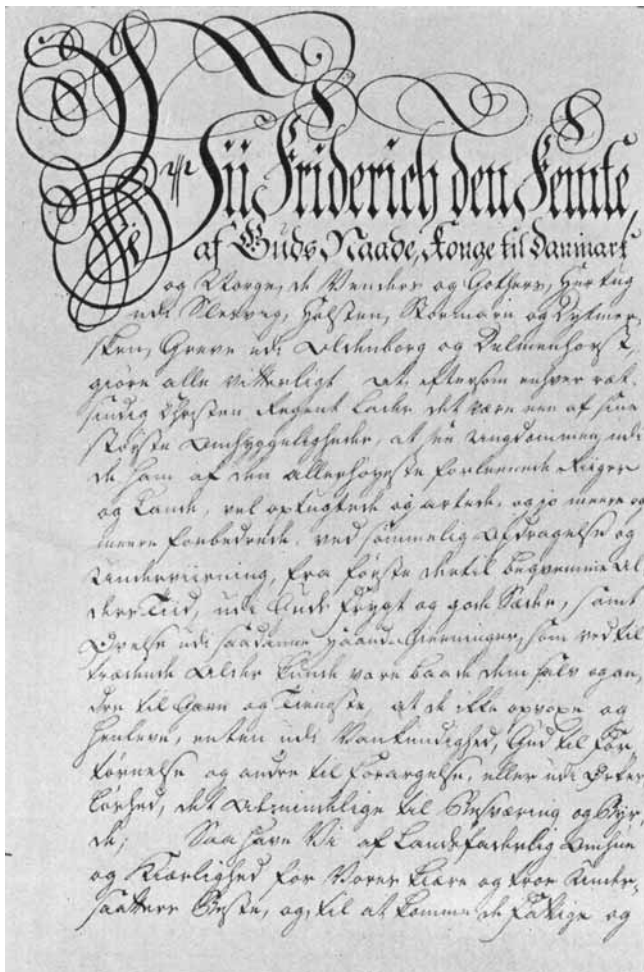 Vii Friderich den Femte,
af Guds Naade, Konge til Danmark
og Norge, de Venders og Gothers, Hertug
udi Slesvig, Holsten, Stormarn og Dytmer-
sken, Greve udi Oldenborg og Delmenhorst,
giøre alle vitterligt at eftersom enhver ret-
sindig Christen Regent lader det være een af sine
største Omhyggeligheder, at see Ungdommen udi
de ham af den allerhøyeste forleenede Riiger
og Lande, vel optugtede og artede, og jo meere og
meere forbedrede, ved sømmelig Opdragelse og
Underviisning, fra første dertil beqvemme Al-
ders Tiid, udi Guds Frygt og gode Sæder, samt
Øvelse udi saadanne Haand-Gierninger, som ved til-
trædende Alder kunde være baade dem selv og an-
dre til Gavn og Tieneste, at de ikke opvoxe og
henleve, enten udi Vankundighed, Gud til For-
tørnelse og andre til Forargelse, eller udi Ørkes-
løshed, det Almindelige til Besværing og Byr-
de; Saa have Vi af Landsfaderlig Omhue
og Kiærlighed for Vores kiære og troe Under-
saatters Beste, og til at komme de fattige og